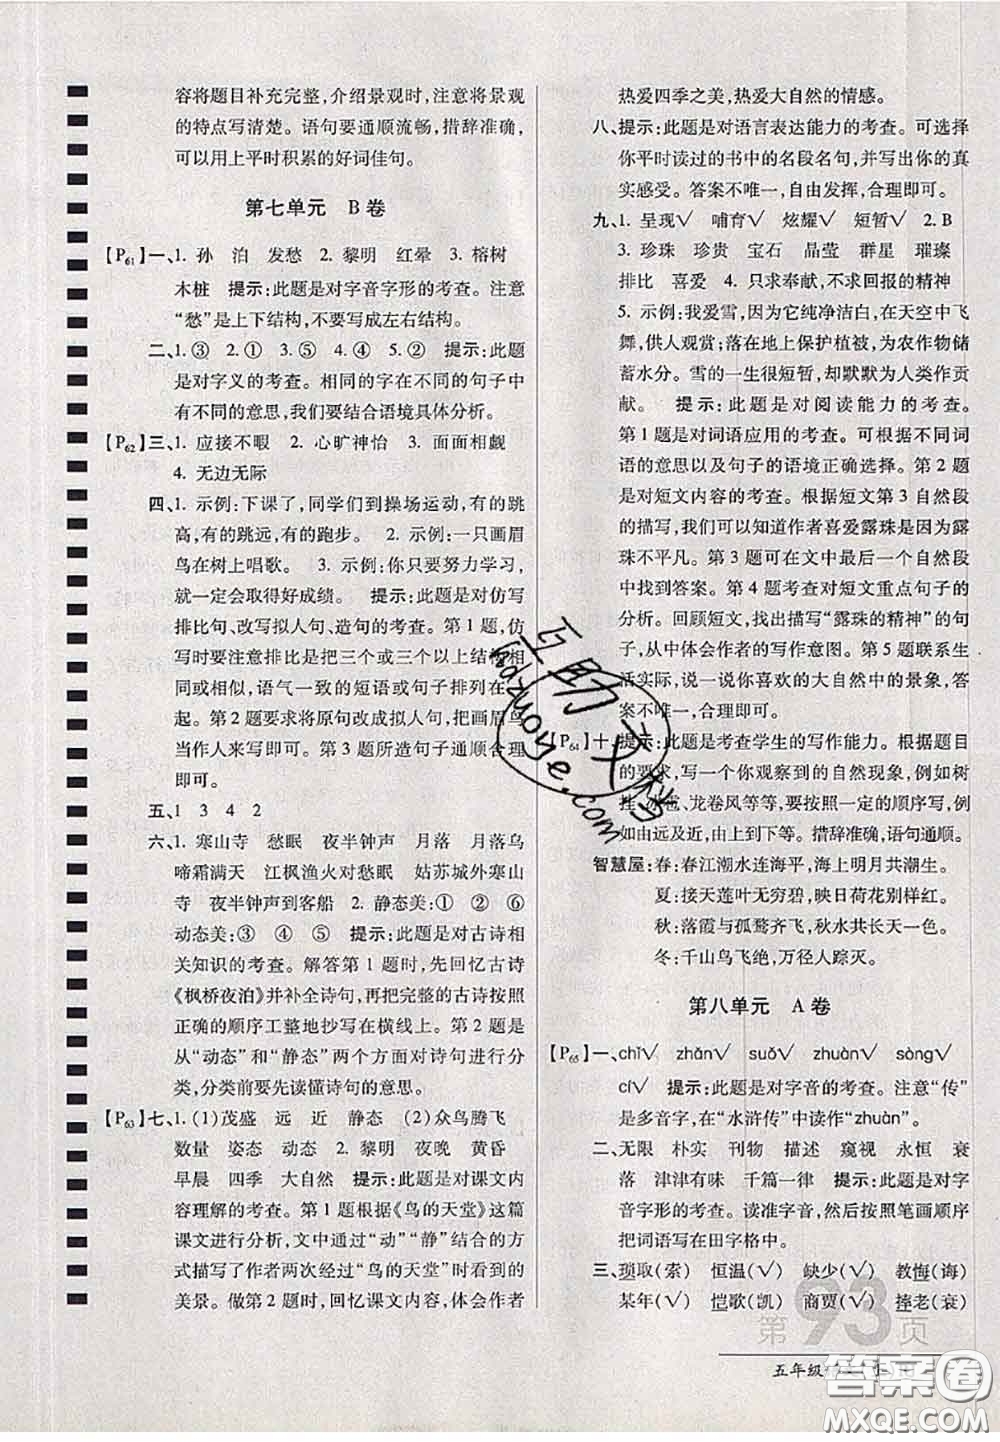 容将题目补充完整,介绍景观时,注意将景观
的特点写清楚。语句要通顺流畅,措辞准确,
可以用上平时积累的好词佳句。
第七单元 B卷
【P61】一、1. 孙 泊 发愁 2. 黎明 红晕 3. 榕树
木桩 提示:此题是对字音字形的考查。注意
“愁”是上下结构,不要写成左右结构。
二、1. ③ 2. ① 3. ⑤ 4. ④ 5. ② 提示:此题
是对字义的考查。相同的字在不同的句子中
有不同的意思,我们要结合语境具体分析。
【P62】三、1. 应接不暇 2. 心旷神怡 3. 面面相觑
4. 无边无际
四、1. 示例:下课了,同学们到操场运动,有的跳
高,有的跳远,有的跑步。 2. 示例:一只画眉
鸟在树上唱歌。 3. 示例:你只要努力学习,
就一定会取得好成绩。 提示:此题是对仿写
排比句、改写拟人句、造句的考查。第 1 题,仿
写时要注意排比是把三个或三个以上结构相
同或相似,语气一致的短语或句子排列在一
起。第 2 题要求将原句改成拟人句,把画眉鸟
当作人来写即可。第 3 题所造句子通顺合理
即可。
五、1 3 4 2
六、1. 寒山寺 愁眠 夜半钟声 月落 月落乌
啼霜满天 江枫渔火对愁眠 姑苏城外寒山
寺 夜半钟声到客船 2. 静态美:① ② ⑥
动态美:③ ④ ⑤ 提示:此题是对古诗相
关知识的考查。解答第 1 题时,先回忆古诗
《枫桥夜泊》并补全诗句,再把完整的古诗按照
正确的顺序工整地抄写在横线上。第 2 题是
从“动态”和“静态”两个方面对诗句进行分
类,分类前要先读懂诗句的意思。
【P63】七、1. (1)茂盛 远 近 静态 (2)众鸟腾飞
数量 姿态 动态 2. 黎明 夜晚 黄昏
早晨 四季 大自然 提示:此题是对课文内
容理解的考查。第 1 题根据《鸟的天堂》这篇
课文进行分析,文中通过“动”“静”结合的方
式描写了作者两次经过“鸟的天堂”时看到的
美景。做第 2 题时,回忆课文内容,体会作者
热爱四季之美,热爱大自然的情感。
八、提示:此题是对语言表达能力的考查。可选择
你平时读过的书中的名段名句,并写出你的真
实感受。答案不唯一,自由发挥,合理即可。
九、1. 呈现√ 哺育√ 炫耀√ 短暂√ 2. B
3. 珍珠 珍贵 宝石 晶莹 群星 璀璨
排比 喜爱 4. 只求奉献,不求回报的精神
5. 示例:我爱雪,因为它纯净洁白,在天空中飞
舞,供人观赏;落在地上保护植被,为农作物储
蓄水分。雪的一生很短暂,却默默为人类作贡
献。 提示:此题是对阅读能力的考查。
第 1 题是对词语应用的考查。可根据不同词
语的意思以及句子的语境正确选择。第 2 题
是对短文内容的考查。根据短文第 3 自然段
的描写,我们可以知道作者喜爱露珠是因为露
珠不平凡。第 3 题可在文中最后一个自然段
中找到答案。第 4 题考查对短文重点句子的
分析。回顾短文,找出描写“露珠的精神”的句
子,从中体会作者的写作意图。第 5 题联系生
活实际,说说你喜欢的大自然中的景象,答
案不唯一,合理即可。
【P64】十、提示:此题是考查学生的写作能力。根据题目
的要求,写一写你观察到的自然现象,例如树
挂、冰雹、龙卷风等等,要按照一定的顺序写,例
如由远及近,由上到下等。措辞准确,语句通顺。
智慧屋:春:春江潮水连海平,海上明月共潮生。
夏:接天莲叶无穷碧,映日荷花别样红。
秋:落霞与孤鹜齐飞,秋水共长天一色。
冬:千山鸟飞绝,万径人踪灭。
第八单元 A卷
【P65】一、chǐ√ zhǎn√ suǒ√ zhuàn√ sòng√
cí√ 提示:此题是对字音的考查。注意“传”
是多音字,在“水浒传”中读作“zhuàn”。
二、无限 朴实 刊物 描述 窥视 永恒 衰
落 津津有味 千篇一律 提示:此题是对字
音字形的考查。读准字音,然后按照笔画顺序
把词语写在田字格中。
三、琐取(索) 恒温(√) 缺少(√) 教悔(诲)
某年(√) 恺歌(凯) 商贾(√) 摔老(衰)
第93页
五年级
答案圈
MXQE.COM
互助文档
hdzuoye.com